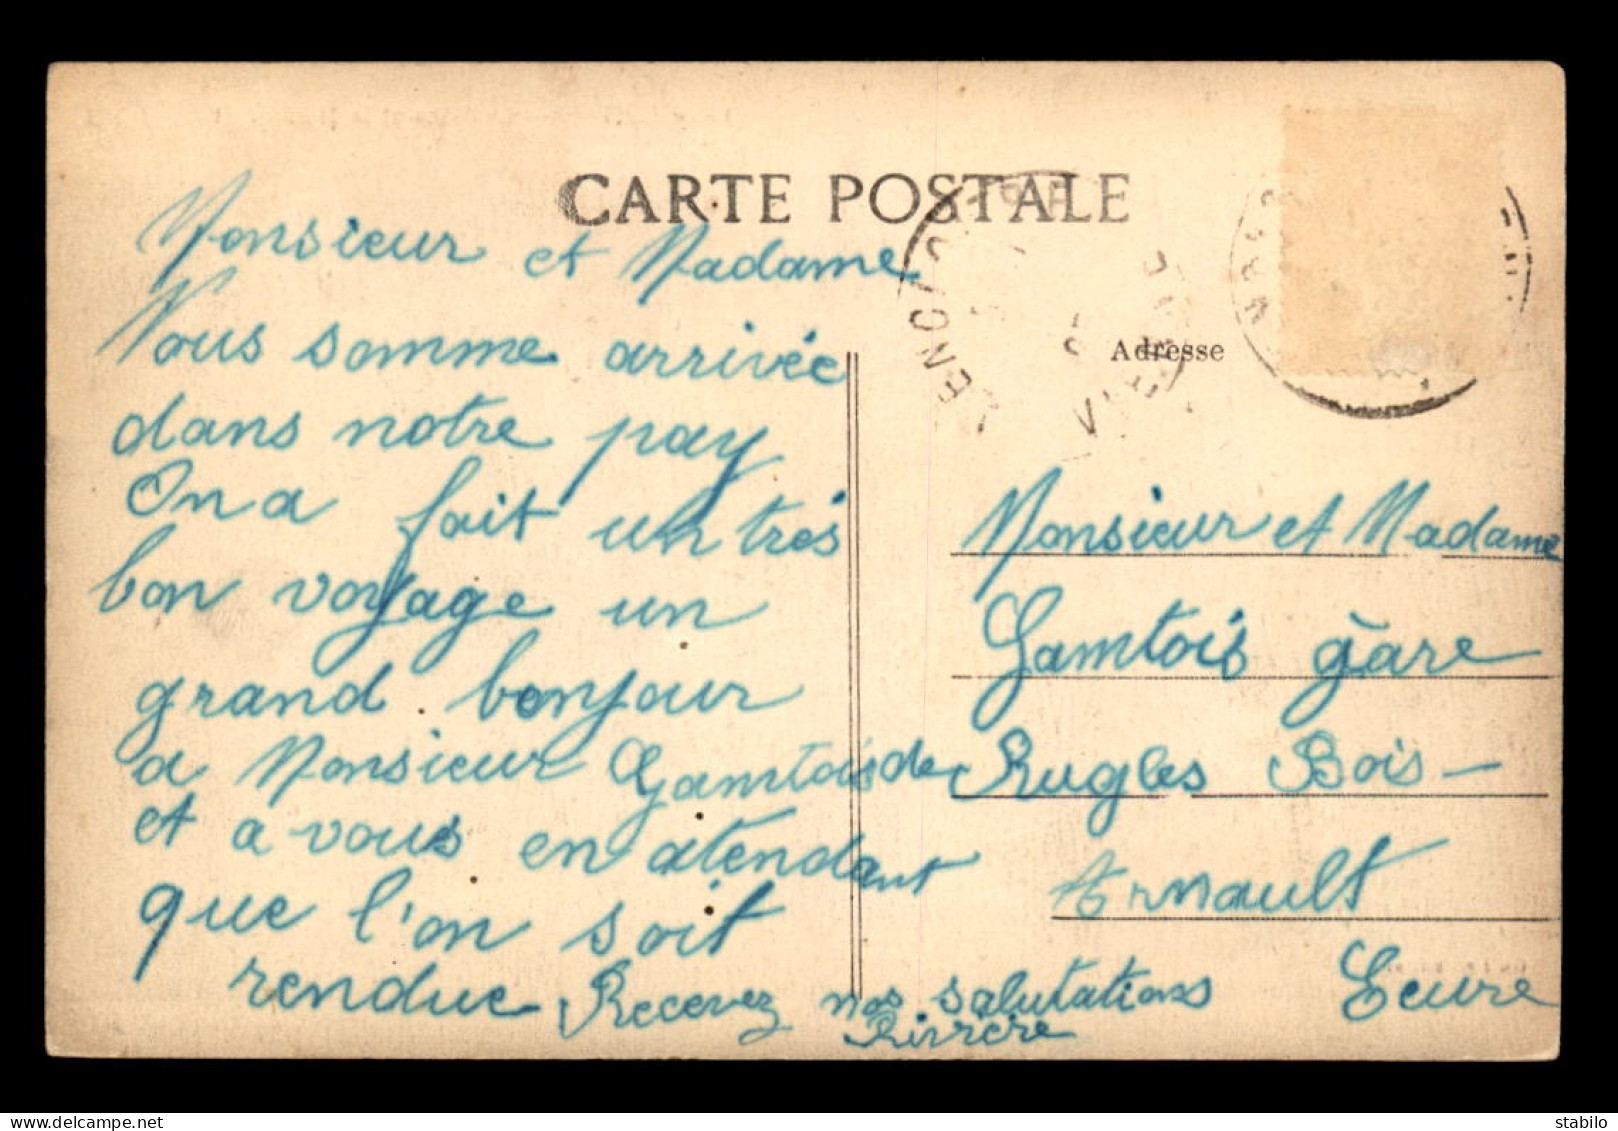 CARTE POSTALE
Monsieur et Madame
Nous somme arrivée
dans notre pay
On a fait un très
bon voyage un
grand bonjour
a Monsieur Gamtois de
et a vous en atendant
que l'on soit
rendue Recevez nos salutations
Rivière
Adresse
Monsieur et Madame
Gamtois gàre
Rugles Bois -
Arnault
Eeure
delcampe.net
stabilo